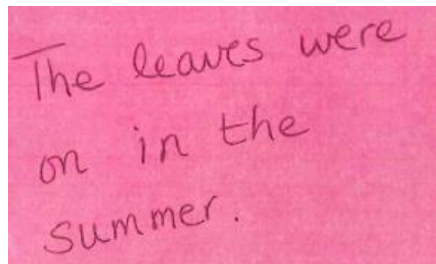 The leaves were
on in the
summer.